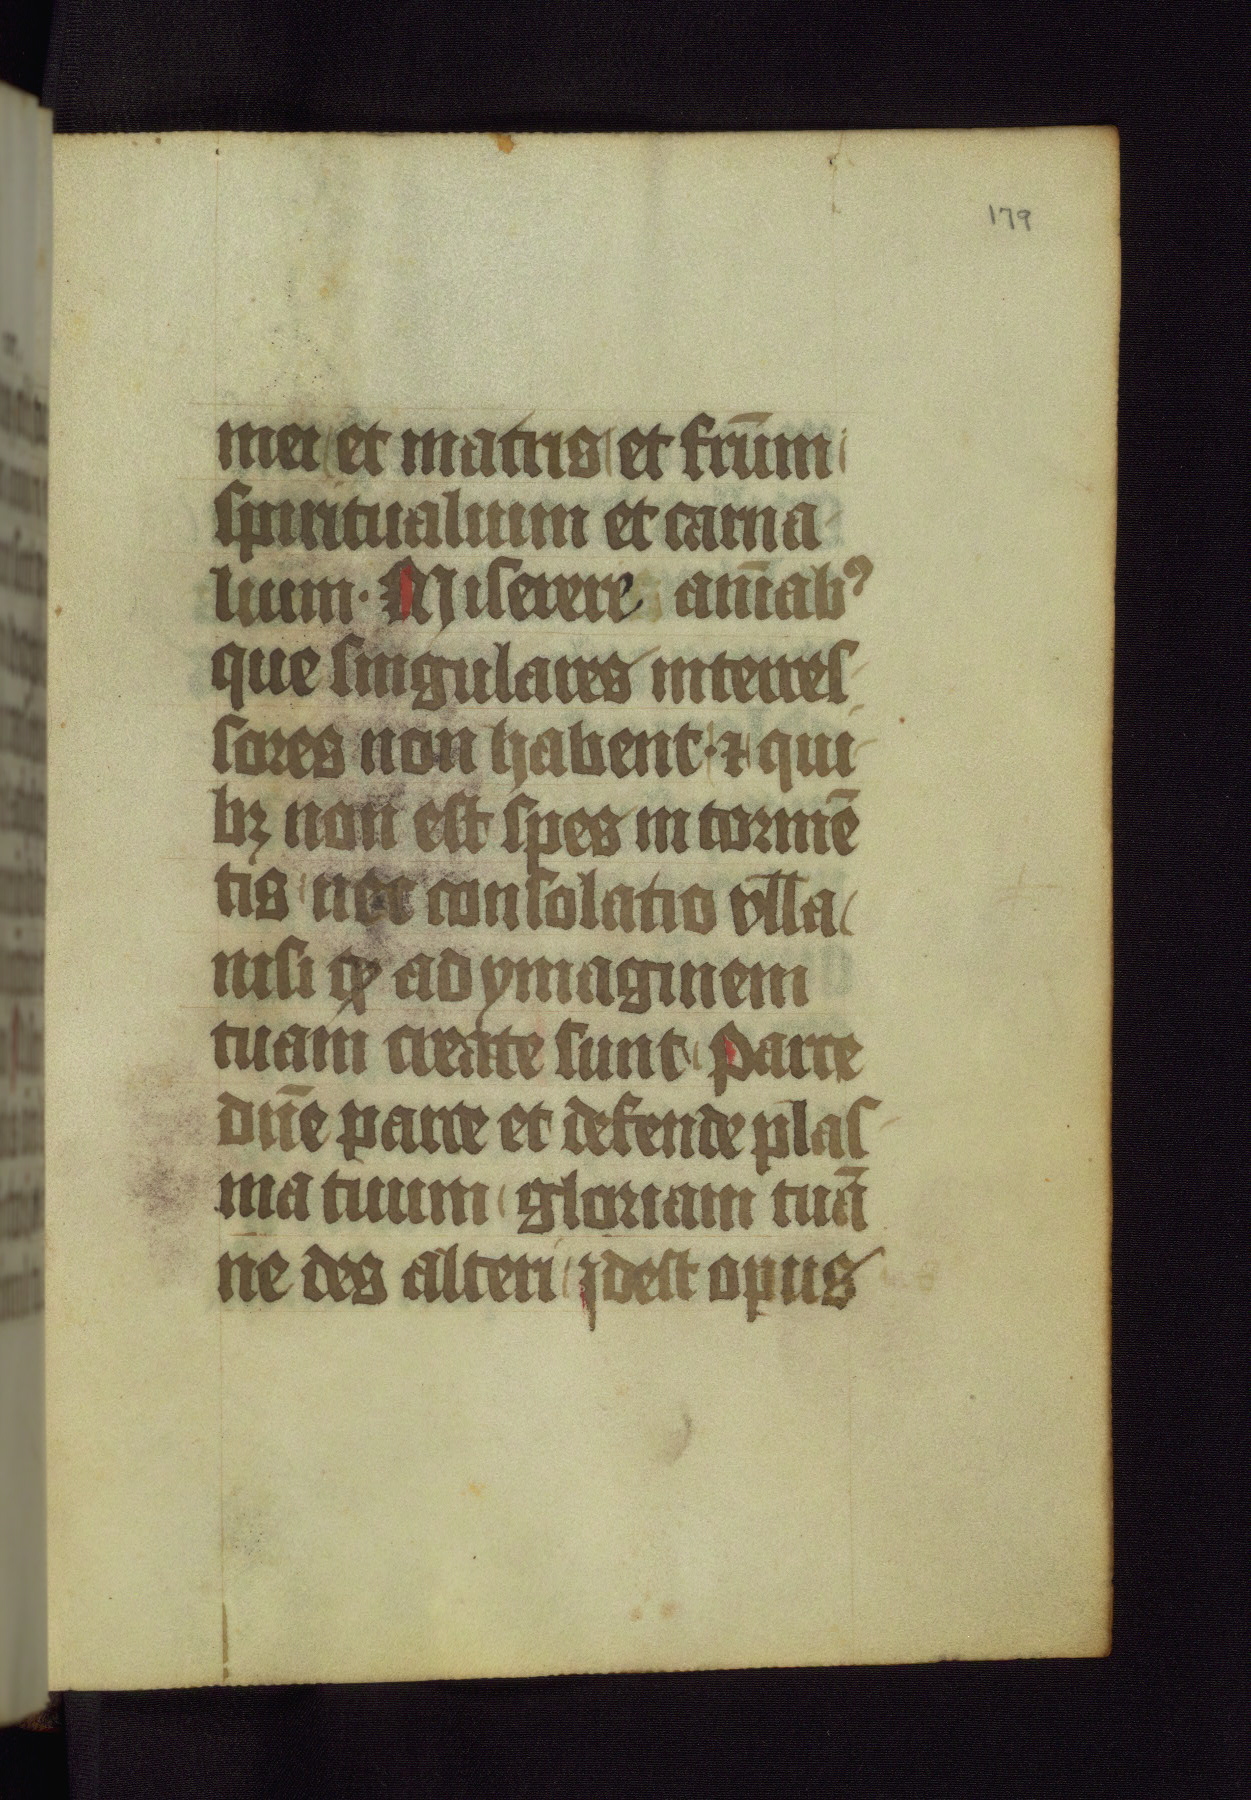 179
mei et matris et frūm
spiritualium et carna
lium. Miserere aīabꝰ
que singulares interces
sores non habent. ⁊ qui
bꝫ non est spes in tormē
tis nec consolatio vlla
nisi qꝫ ad ymaginem
tuam create sunt Parce
dn̄e parce et defende plas
ma tuum gloriam tuā
ne des alteri jdest opus